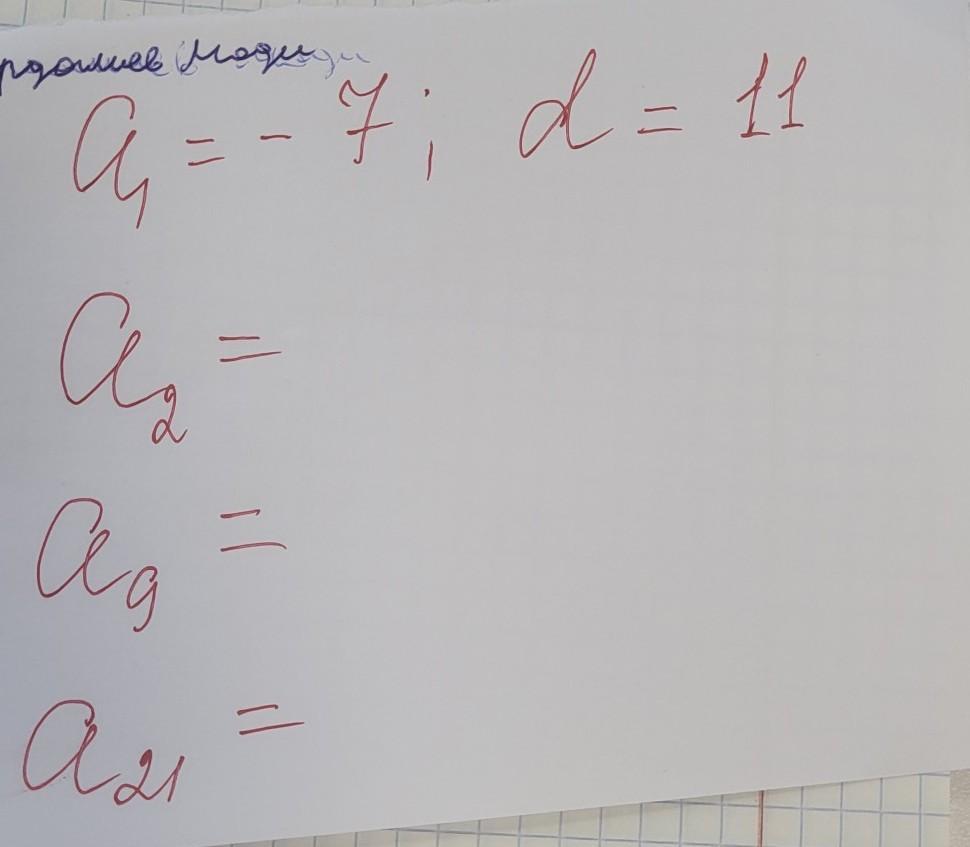 a₁ = - 7; d = 11
a₂ =
a₉ =
a₂₁ =